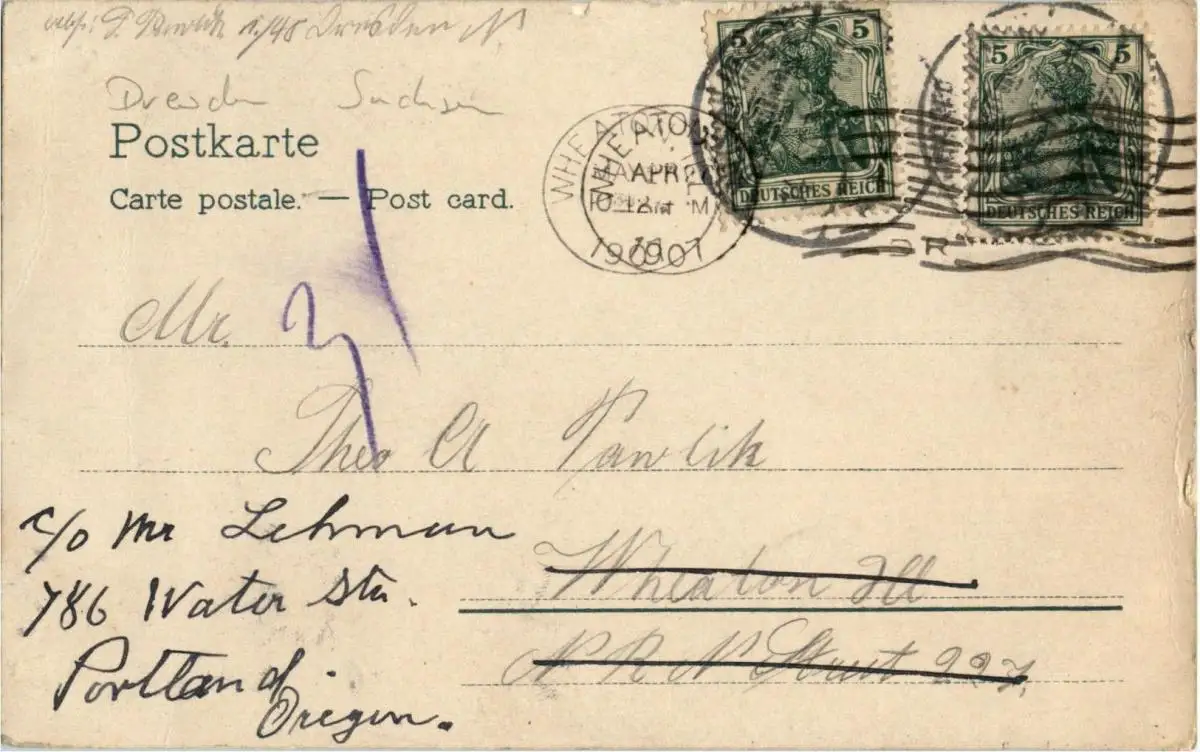 Dresden N
Dresden Sachsen
Postkarte
Carte postale. — Post card.
5 5
DEUTSCHES REICH
5 5
DEUTSCHES REICH
WHEATON
APR
1907
Mr.
Theo A Pawlik
c/o Mr Lehman
786 Water Str.
Portland.
Oregon.
Wheaton Ill
N R N Street 227